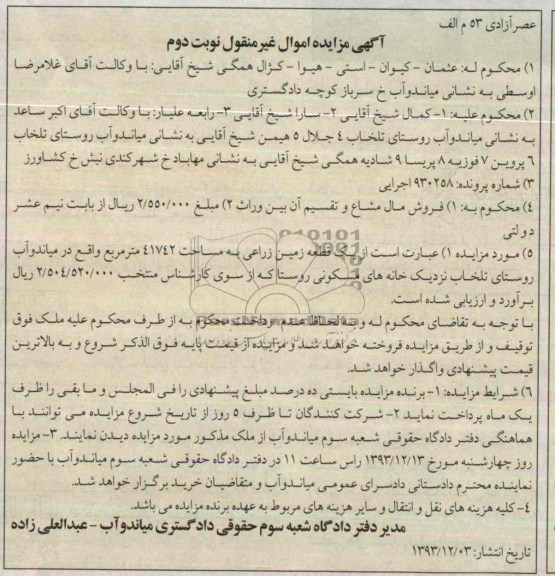 عصرآزادی ۵۳ م الف
آگهی مزایده اموال غیرمنقول نوبت دوم
۱) محکوم له: عثمان - کیوان - استی - هیوا - کژال همگی شیخ آقایی: با وکالت آقای غلامرضا
اوسطی به نشانی میاندوآب خ سرباز کوچه دادگستری
۲) محکوم علیه: ۱- کمال شیخ آقایی ۲- سارا شیخ آقایی ۳- رابعه علیار: با وکالت آقای اکبر ساعد
به نشانی میاندوآب روستای تلخاب ۴ جلال ۵ هیمن شیخ آقایی به نشانی میاندوآب روستای تلخاب
۶ پروین ۷ فوزیه ۸ پریسا ۹ شادیه همگی شیخ آقایی به نشانی مهاباد خ شهرکندی نبش خ کشاورز
۳) شماره پرونده: ۹۳۰۲۵۸ اجرایی
۴) محکوم به: ۱) فروش مال مشاع و تقسیم آن بین وراث ۲) مبلغ ۲/۵۵۰/۰۰۰ ریال از بابت نیم عشر
دولتی
۵) مورد مزایده ۱) عبارت است از یک قطعه زمین زراعی به مساحت ۴۱۷۴۲ مترمربع واقع در میاندوآب
روستای تلخاب نزدیک خانه های مسکونی روستا که از سوی کارشناس منتخب ۲/۵۰۴/۵۲۰/۰۰۰ ریال
برآورد و ارزیابی شده است.
با توجه به تقاضای محکوم له و به لحاظ عدم پرداخت محکوم به از طرف محکوم علیه ملک فوق
توقیف و از طریق مزایده فروخته خواهد شد و مزایده از قیمت پایه فوق الذکر شروع و به بالاترین
قیمت پیشنهادی واگذار خواهد شد.
۶) شرایط مزایده: ۱- برنده مزایده بایستی ده درصد مبلغ پیشنهادی را فی المجلس و مابقی را ظرف
یک ماه پرداخت نماید ۲- شرکت کنندگان تا ظرف ۵ روز از تاریخ شروع مزایده می توانند با
هماهنگی دفتر دادگاه حقوقی شعبه سوم میاندوآب از ملک مذکور مورد مزایده دیدن نمایند. ۳- مزایده
روز چهارشنبه مورخ ۱۳۹۳/۱۲/۱۳ راس ساعت ۱۱ در دفتر دادگاه حقوقی شعبه سوم میاندوآب با حضور
نماینده محترم دادستانی دادسرای عمومی میاندوآب و متقاضیان خرید برگزار خواهد شد.
۴- کلیه هزینه های نقل و انتقال و سایر هزینه های مربوط به عهده برنده مزایده می باشد.
مدیر دفتر دادگاه شعبه سوم حقوقی دادگستری میاندوآب - عبدالعلی زاده
تاریخ انتشار: ۱۳۹۳/۱۲/۰۳